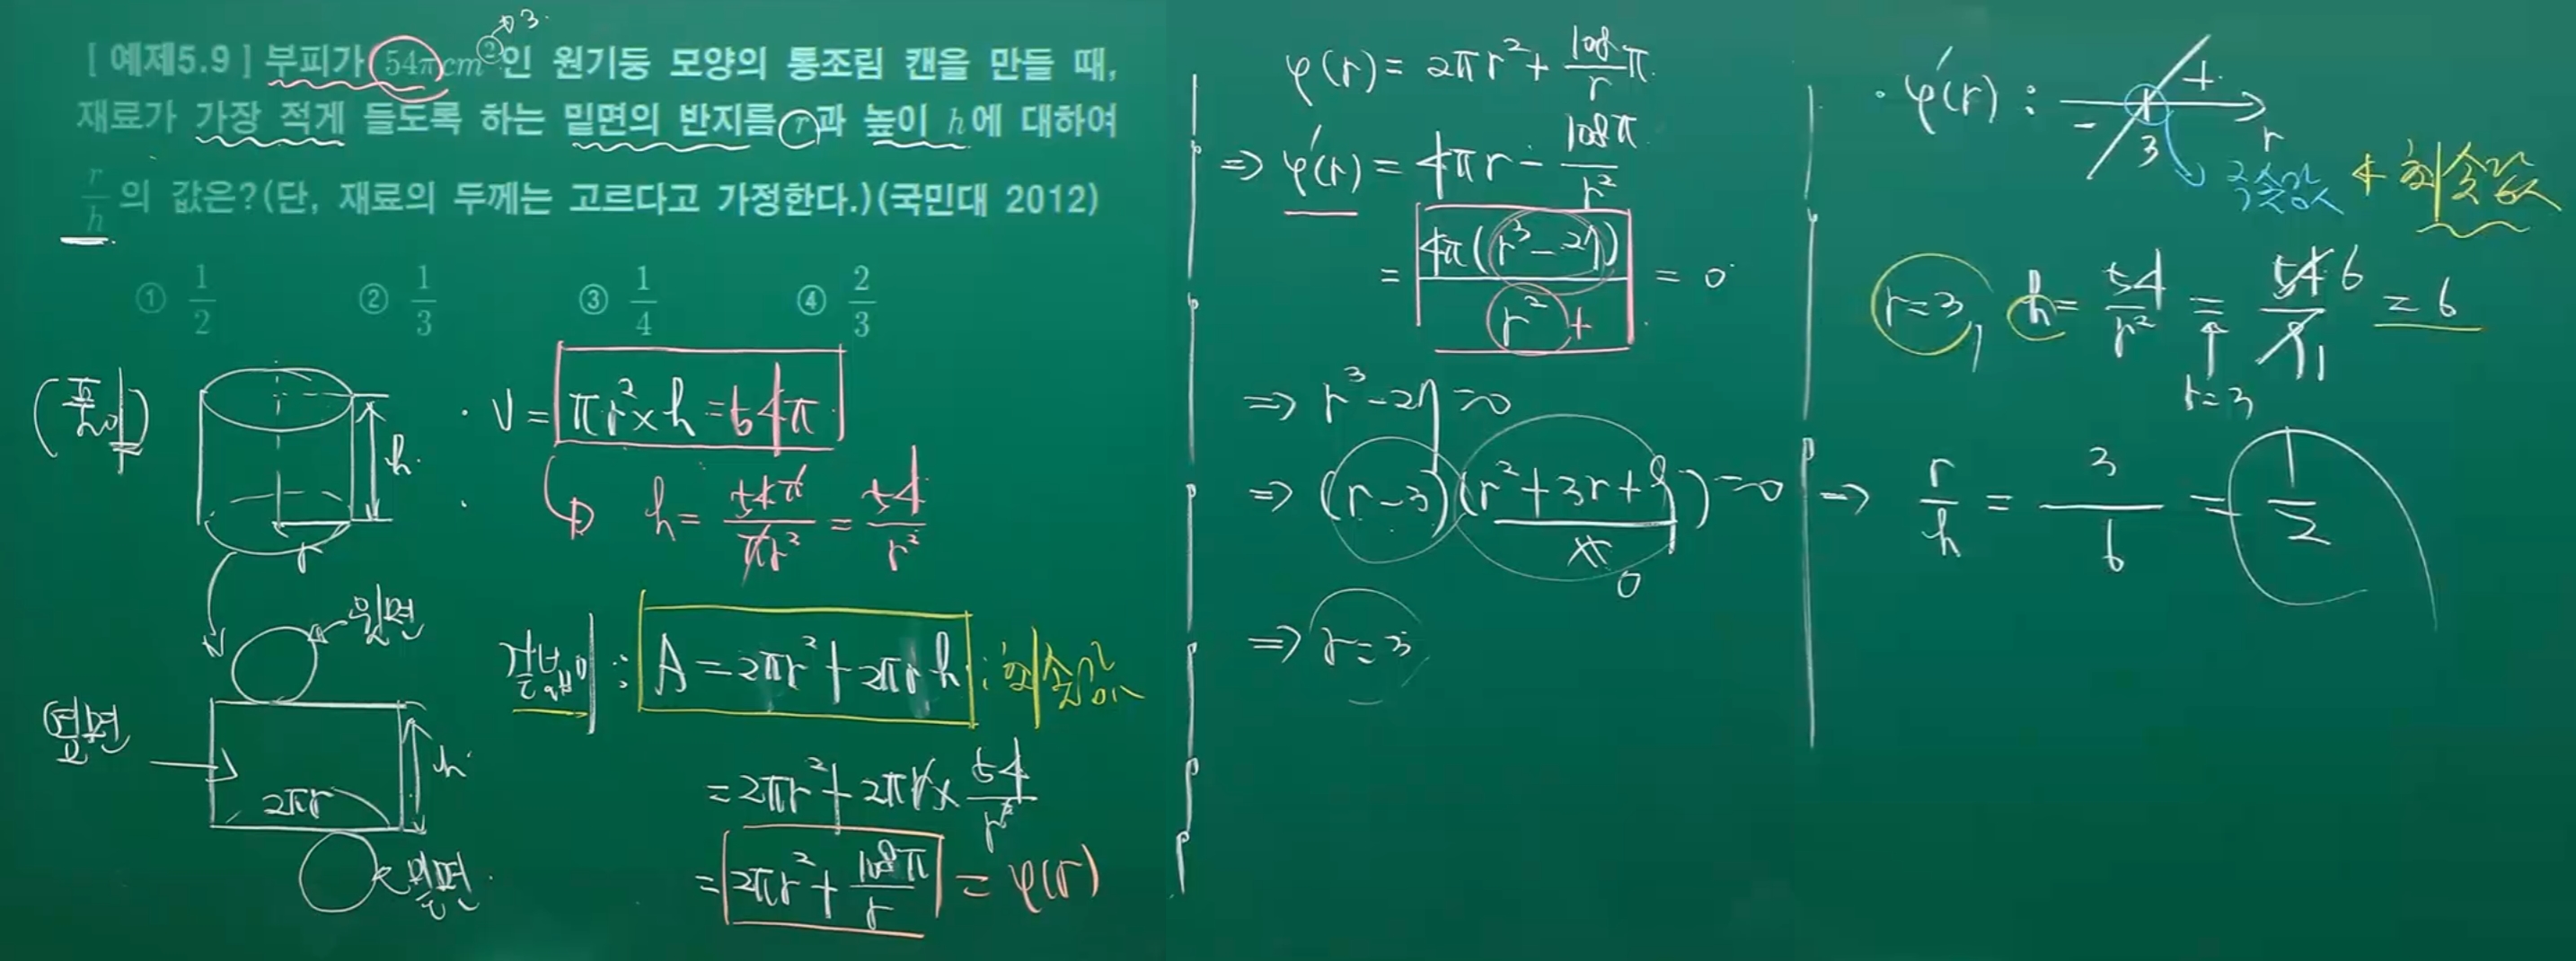 [ 예제5.9 ] 부피가 54πcm² 인 원기둥 모양의 통조림 캔을 만들 때,
→3
재료가 가장 적게 들도록 하는 밑면의 반지름 r과 높이 h에 대하여
r/h 의 값은?(단, 재료의 두께는 고르다고 가정한다.)(국민대 2012)
① 1/2 ② 1/3 ③ 1/4 ④ 2/3
(풀이)
h
r
윗면
옆면
2πr
h
밑면
· V = πr²×h = 54π
h = 54π/πr² = 54/r²
겉넓이 : A = 2πr² + 2πrh : 최솟값
= 2πr² + 2πr × 54/r²
= 2πr² + 108π/r = φ(r)
φ(r) = 2πr² + 108/r π
⇒ φ'(r) = 4πr − 108π/r²
= 4π(r³−27)/r² = 0
+
⇒ r³−27=0
⇒ (r−3)(r²+3r+9)=0
0
⇒ r=3
· φ'(r) : − 3 + r
극솟값 & 최솟값
r=3, h = 54/r² = 54/9 = 6
6
1
r=3
⇒ r/h = 3/6 = 1/2